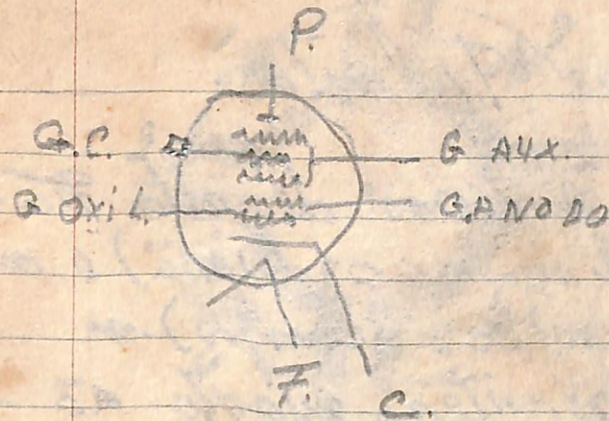 P.
G.C. G AUX.
G OXIL. G.ANODO
F. C.